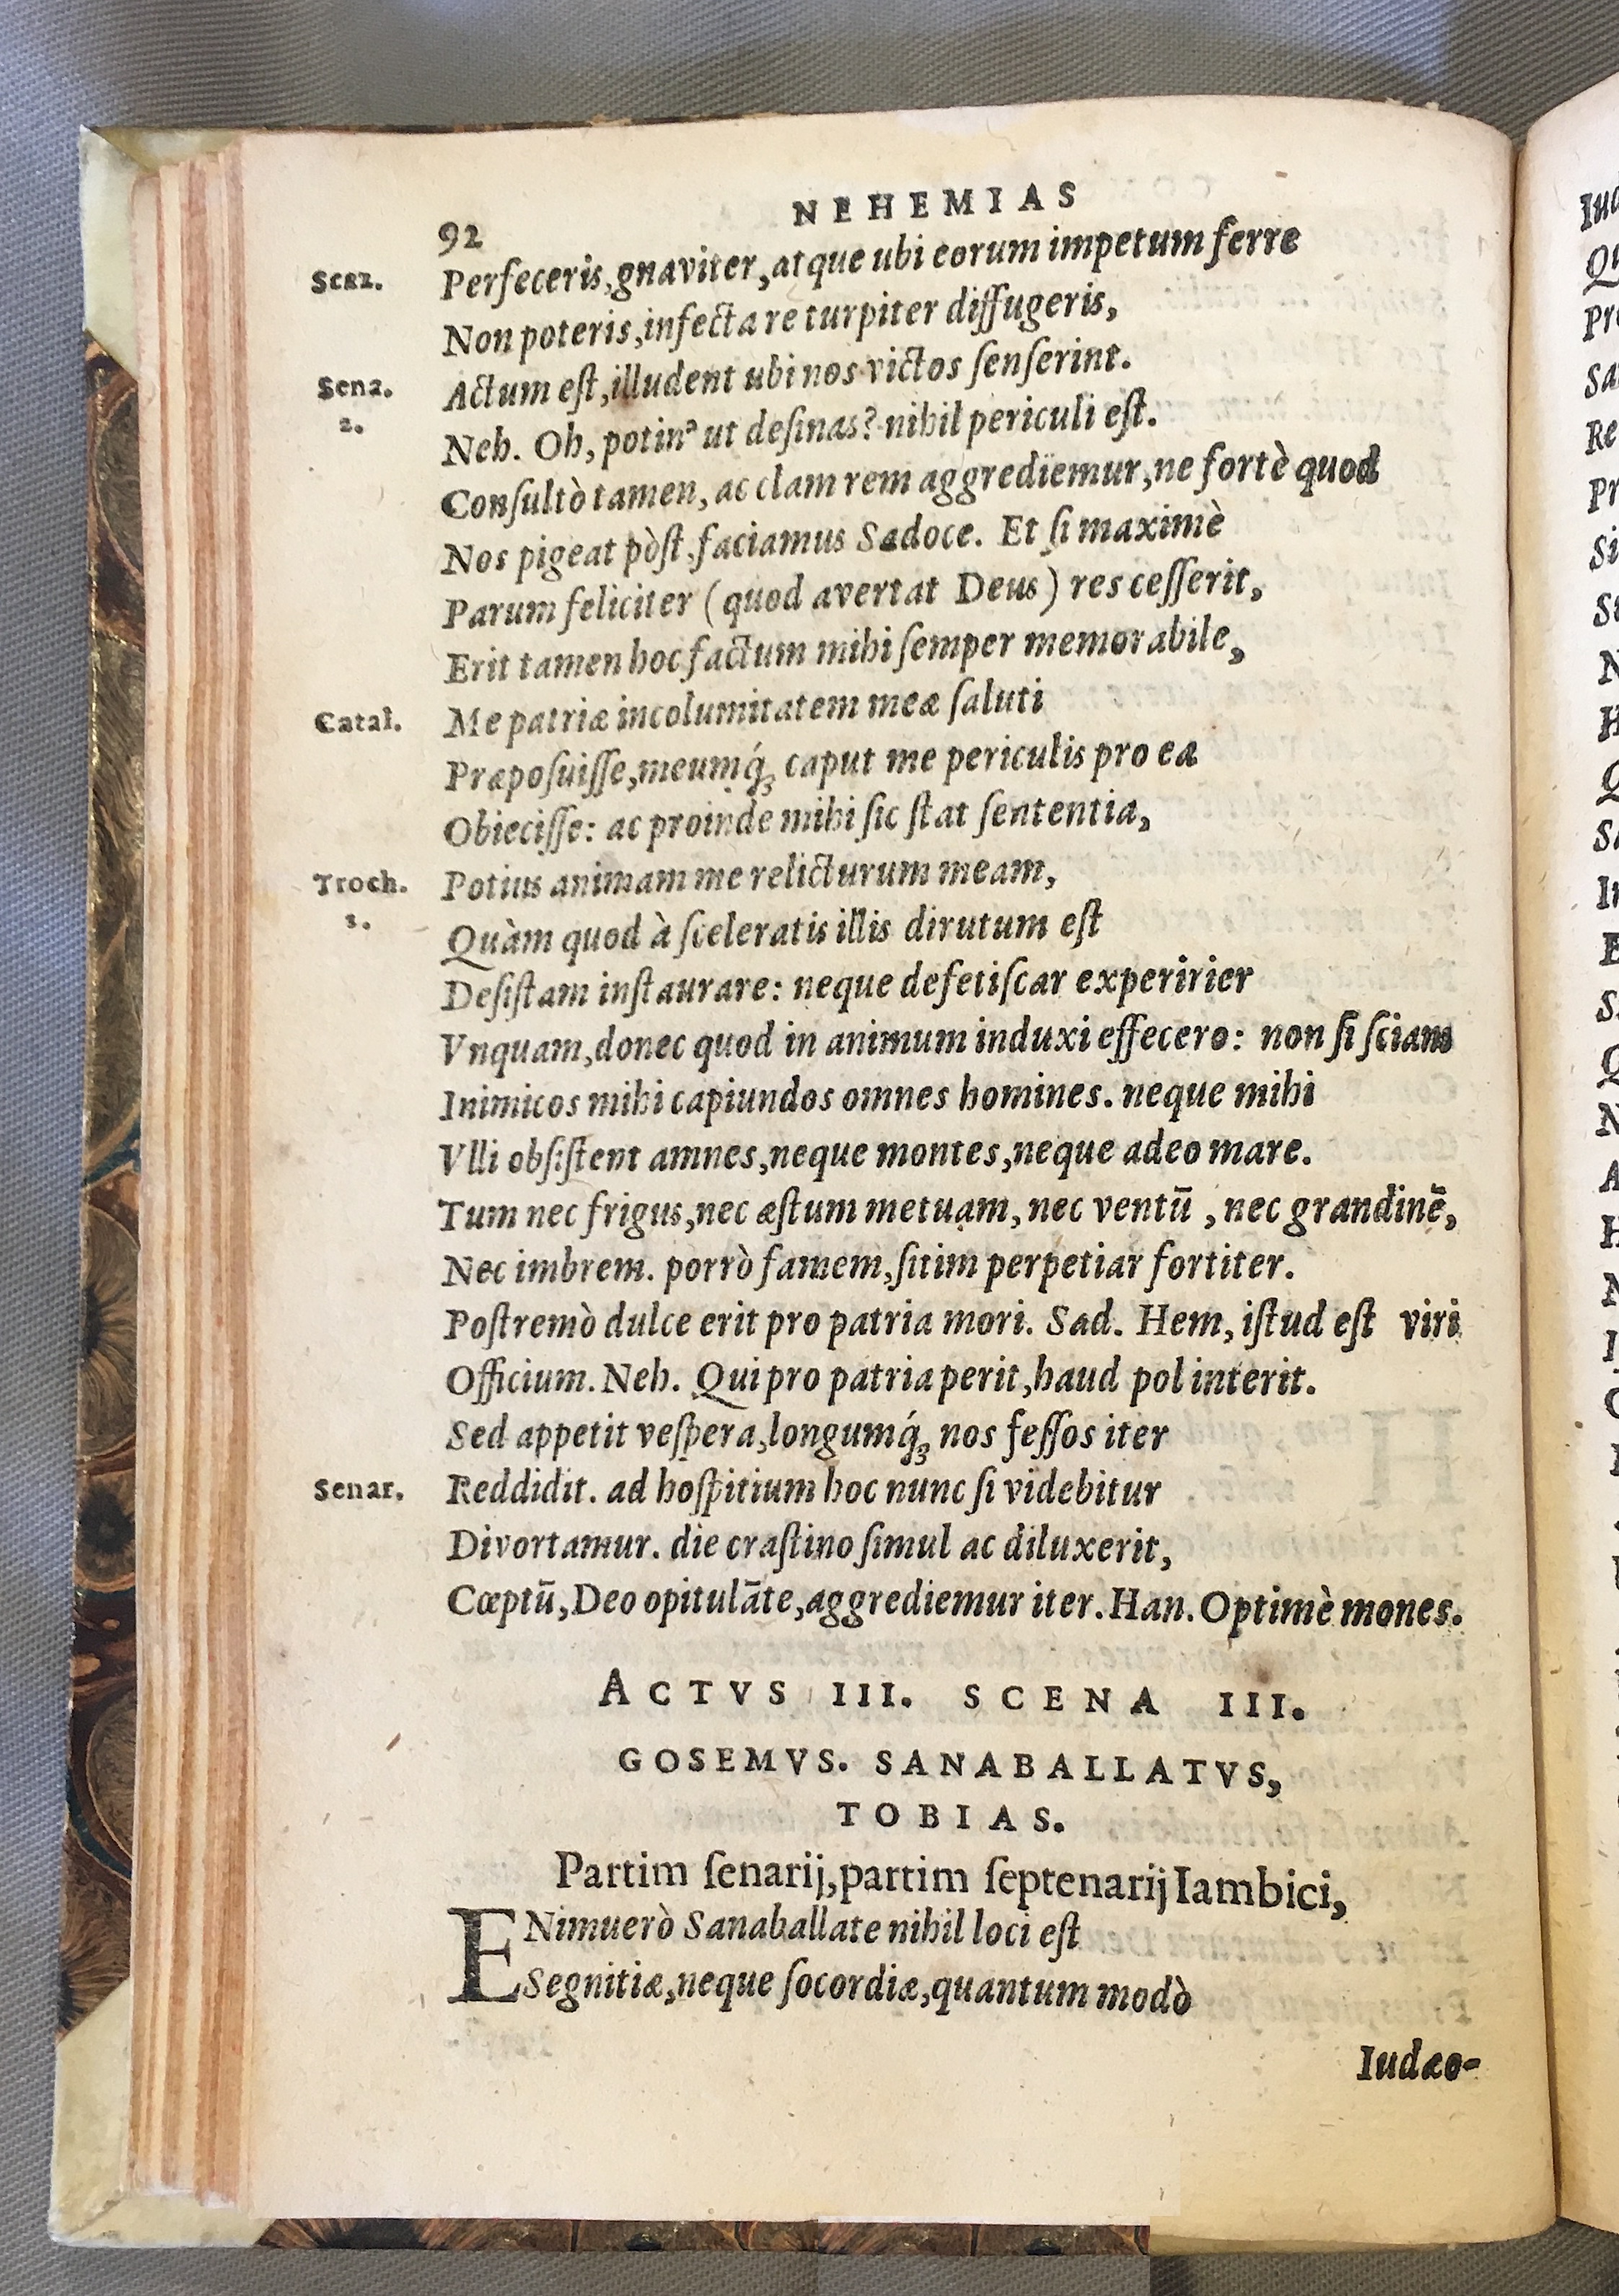 NEHEMIAS
92
Senz. Perfeceris, gnaviter, atque ubi eorum impetum ferre
Non poteris, infecta re turpiter diffugeris,
Sena. Actum eſt, illudent ubi nos victos ſenſerint.
2. Neh. Oh, potin' ut deſinas? nihil periculi eſt.
Conſultò tamen, ac clam rem aggrediemur, ne fortè quod
Nos pigeat pòſt, faciamus Sadoce. Et ſi maximè
Parum feliciter (quod avertat Deus) res ceſſerit,
Erit tamen hoc factum mihi ſemper memorabile,
Catal. Me patriæ incolumitatem meæ ſaluti
Præpoſuiſſe, meumq́; caput me periculis pro ea
Obieciſſe: ac proinde mihi ſic ſtat ſententia,
Troch. Potius animam me relicturum meam,
Quàm quod à ſceleratis illis dirutum eſt
Deſiſtam inſtaurare: neque defetiſcar experirier
Vnquam, donec quod in animum induxi effecero: non ſi ſciam
Inimicos mihi capiundos omnes homines. neque mihi
Vlli obſiſtent amnes, neque montes, neque adeo mare.
Tum nec frigus, nec æſtum metuam, nec ventū, nec grandinē,
Nec imbrem. porrò famem, ſitim perpetiar fortiter.
Poſtremò dulce erit pro patria mori. Sad. Hem, iſtud eſt viri
Officium. Neh. Qui pro patria perit, haud pol interit.
Sed appetit veſpera, longumq́; nos feſſos iter
Senar. Reddidit. ad hoſpitium hoc nunc ſi videbitur
Divortamur. die craſtino ſimul ac diluxerit,
Cœptū, Deo opitulāte, aggrediemur iter. Han. Optimè mones.
ACTVS III. SCENA III.
GOSEMVS. SANABALLATVS,
TOBIAS.
Partim ſenarij, partim ſeptenarij Iambici,
ENimuerò Sanaballate nihil loci eſt
Segnitiæ, neque ſocordiæ, quantum modò
Iudæo-